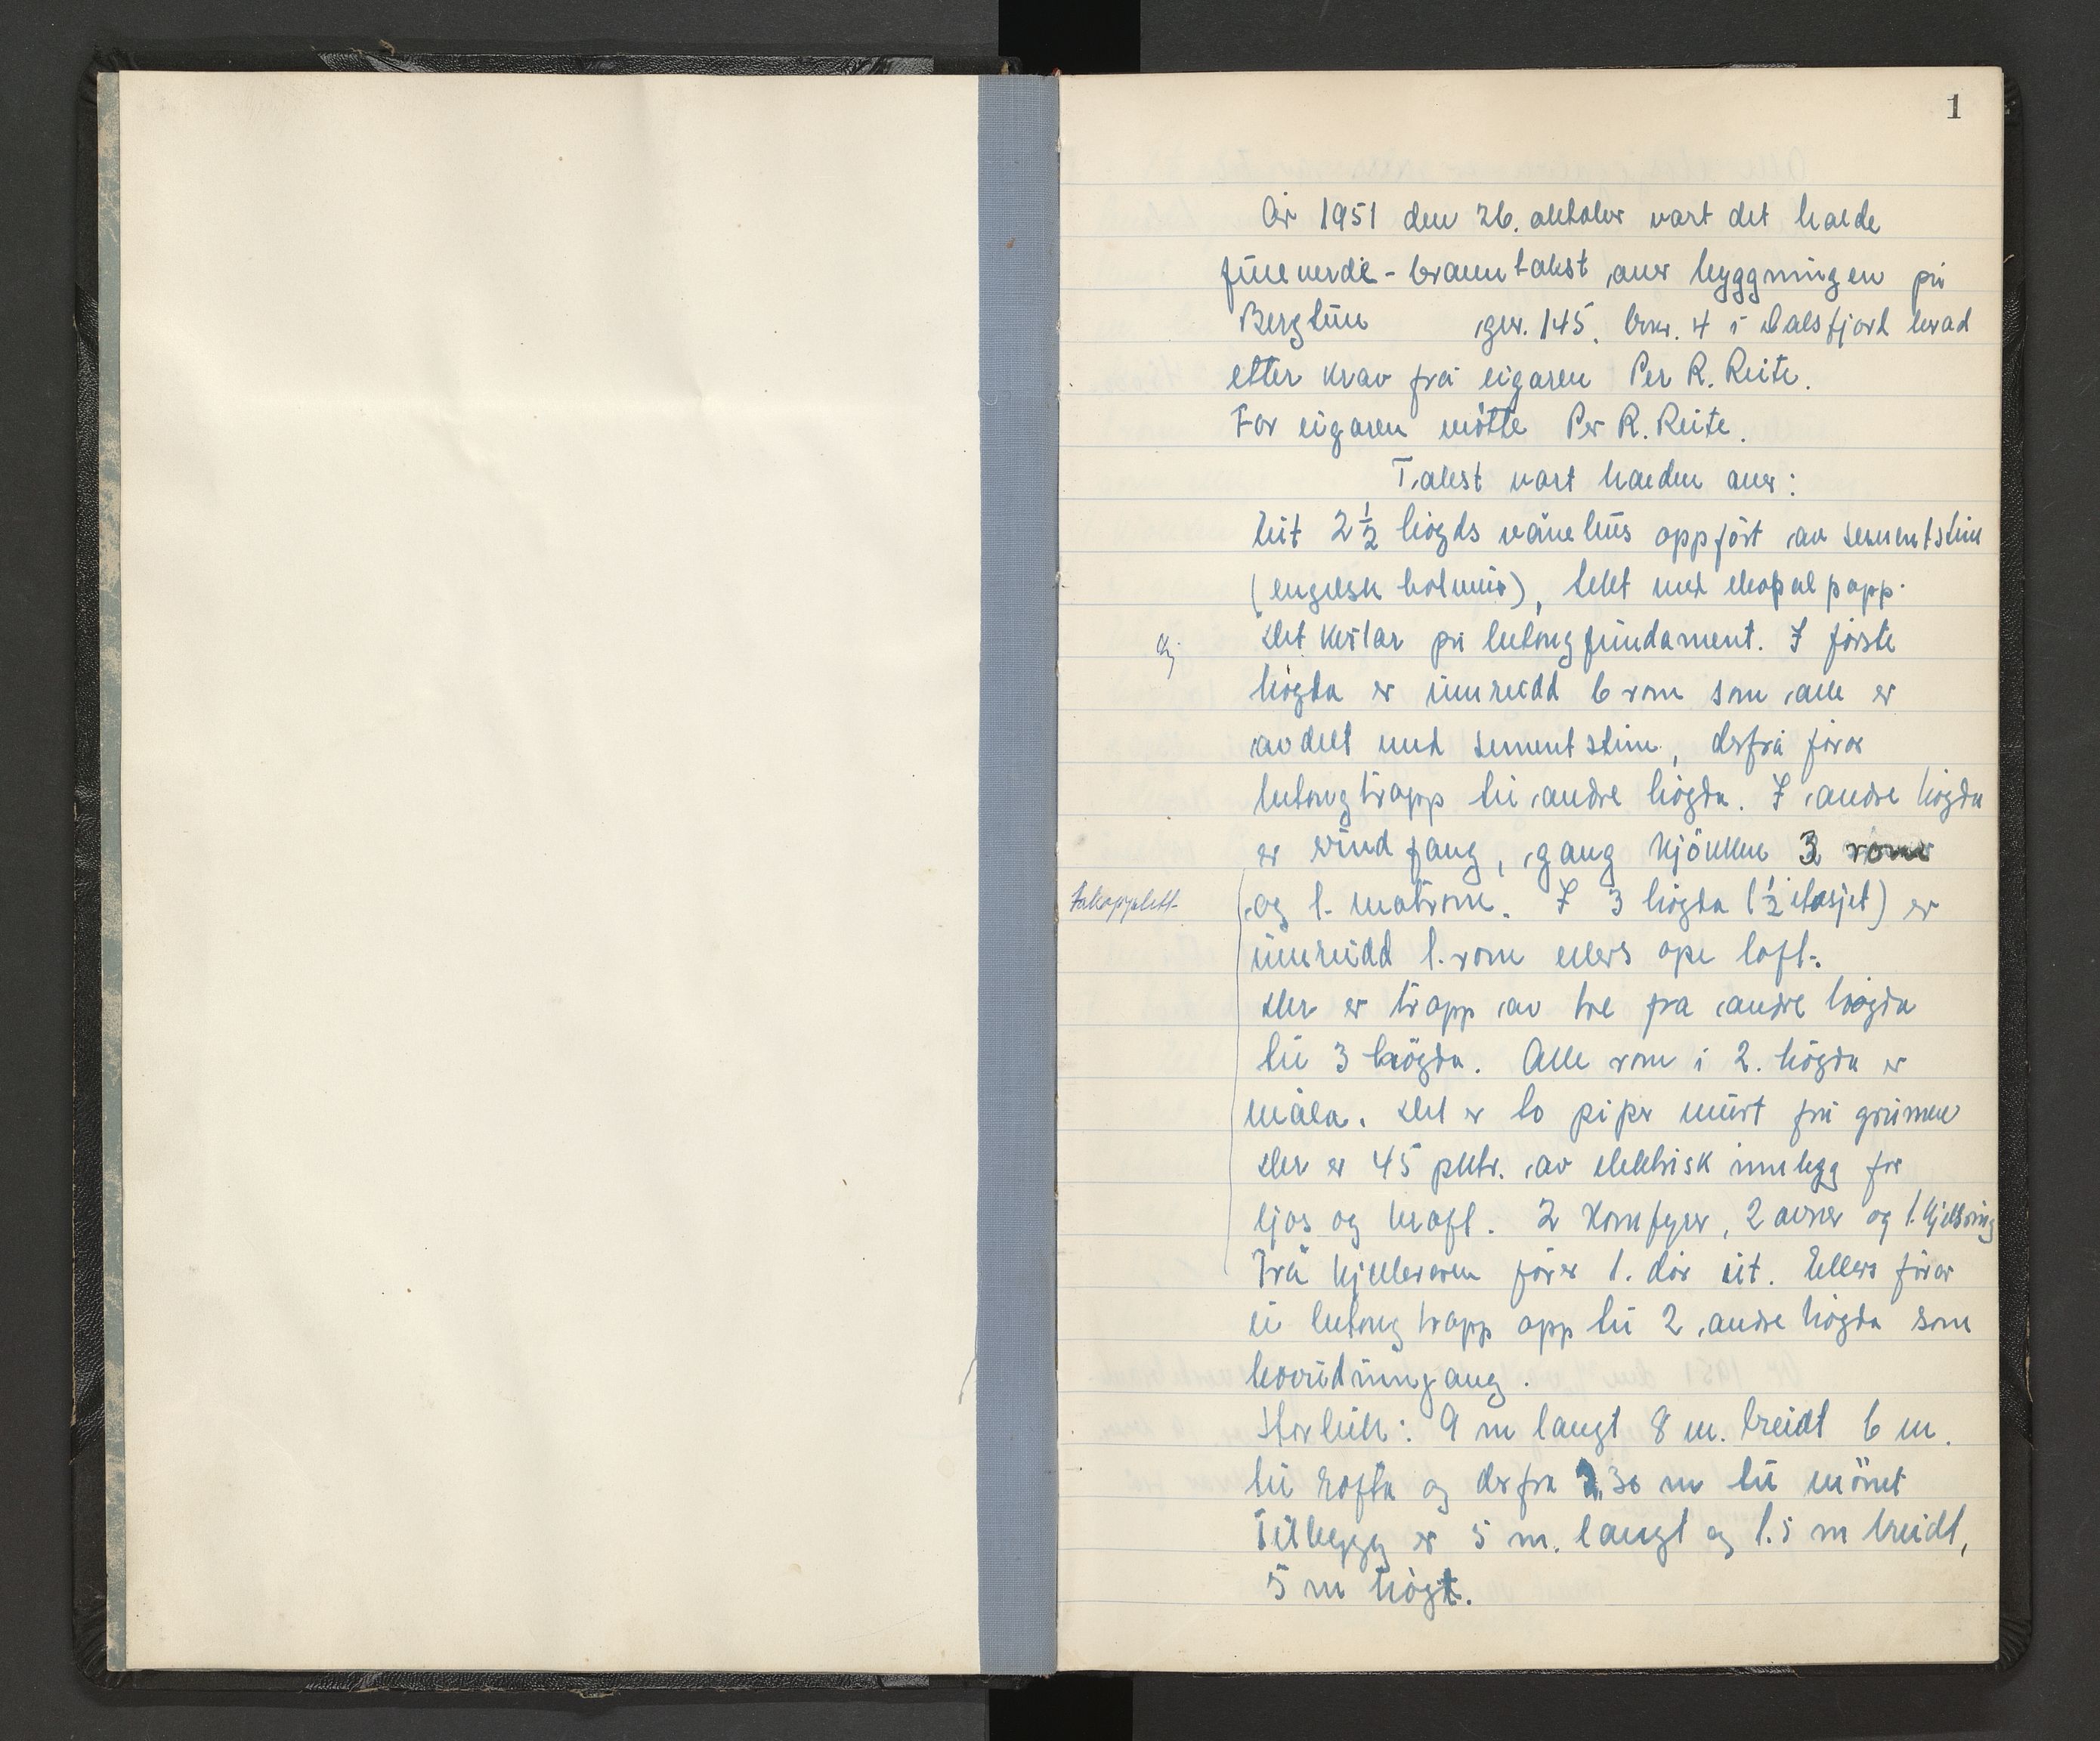 1
År 1951 den 26. oktober vart det halde
fullverdi-branntakst over byggningen på
Berglund gnr. 145. bnr. 4 i Dalsfjord herad
etter krav frå eigaren Per R. Reite.
For eigaren møtte Per R. Reite.
Takst vart halden over:
Eit 2 1/2 høgds vånehus oppført av sementstein
(engelsk holmur), tekt med skopal papp.
Det kviler på betongfundament. I første
høgda er innreidd 6 rom som alle er
avdelt med sementstein, derfrå fører
betongtrapp til andre høgda. I andre høgda
er vindfang, gang kjökken 3 rom
og 1. matrom. I 3 høgda (1/2 etasjet) er
innreidd 1. rom ellers ope loft.
Der er trapp av tre fra andre høgda
til 3 högda. Alle rom i 2. høgda er
måla. Det er to piper murt frå grunnen
Der er 45 pktr. av elektrisk innlegg for
ljos og kraft. 2 komfyrer, 2 ovner og 1.
Frå kjellerrom fører 1. dør ut. Ellers fører
ei betong trapp opp til 2 andre høgda som
hovudinngang.
Storleik: 9 m langt 8 m. breidt 6 m.
til rafta og derfra 2.30 m til mönet
Tilbygg er 5 m. langt og 1.5 m breidt,
5 m høgt.